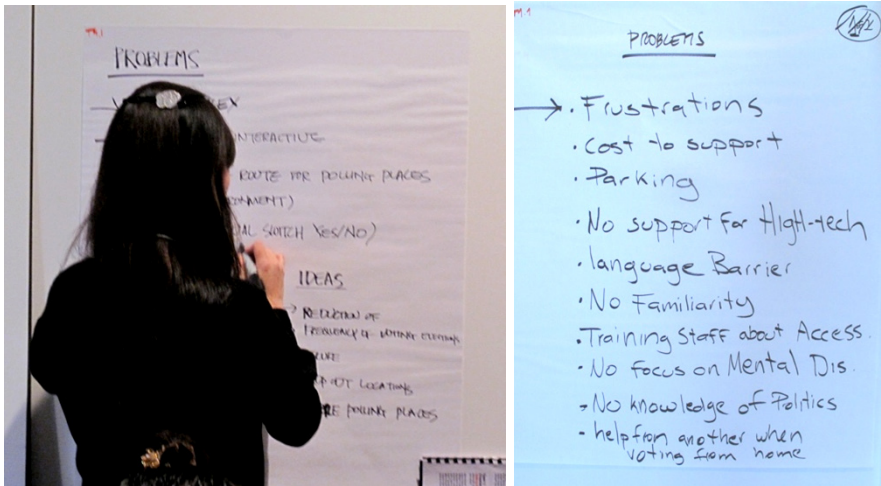 PROBLEMS
INTERACTIVE
ROUTE FOR POLLING PLACES
SWITCH YES/NO)
IDEAS
REDUCTION OF
FREQUENCY OF VOTING ELECTIONS
OUT LOCATIONS
POLLING PLACES
PROBLEMS
→ · Frustrations
· Cost to support
· Parking
· No support for HIGH-tech
· language Barrier
· No Familiarity
· Training Staff about Access.
· No focus on Mental Dis.
- No knowledge of Politics
- help from another when
voting from home